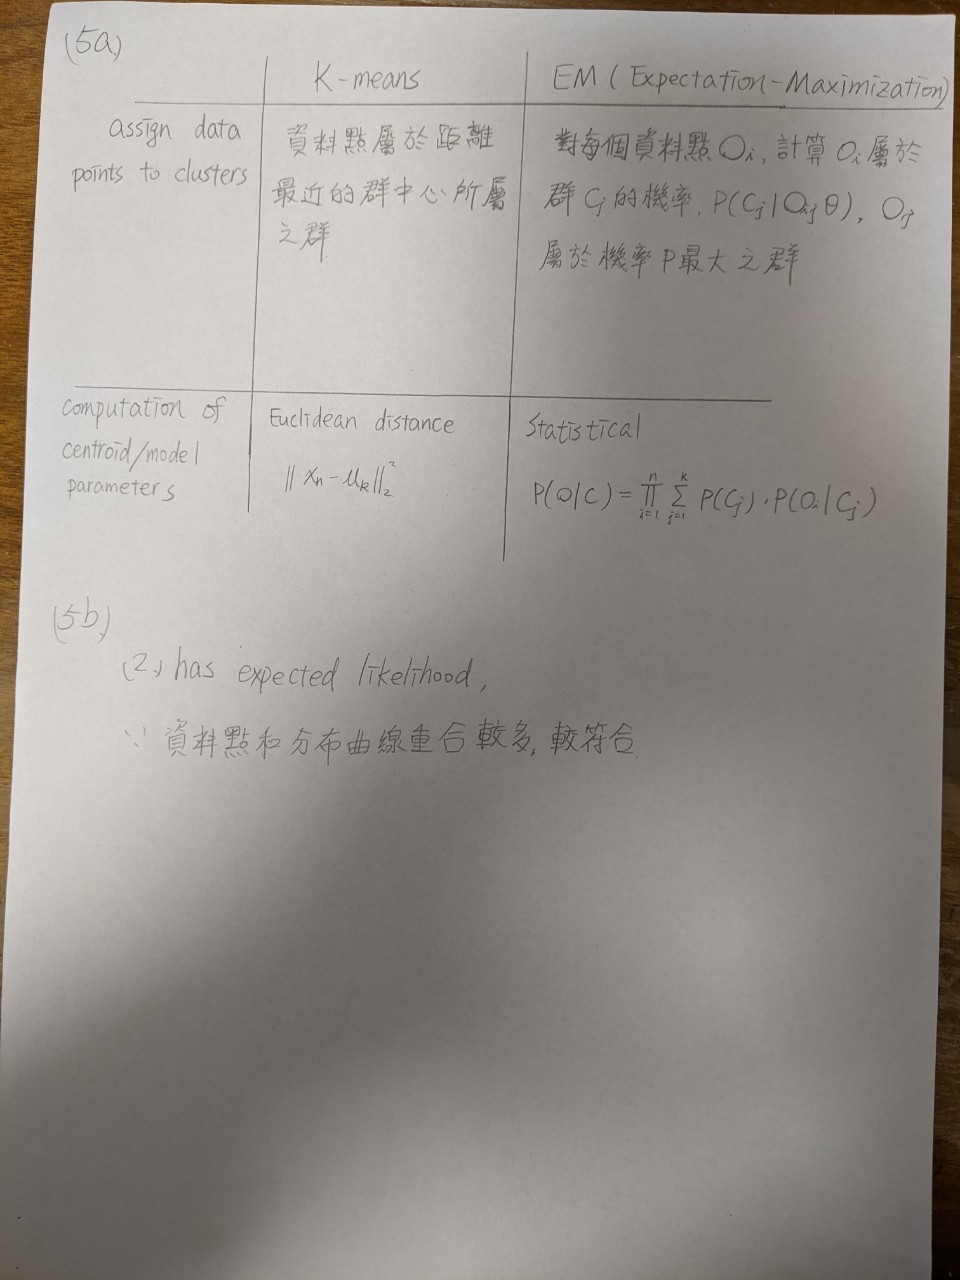 (5a)
K-means
EM ( Expectation-Maximization)
assign data
points to clusters
資料點屬於距離
最近的群中心所屬
之群
對每個資料點 Oi, 計算 Oi 屬於
群 Cj 的機率, P(Cj | Oi, θ), Oj
屬於機率 P 最大之群
computation of
centroid/model
parameters
Euclidean distance
|| xn - μk ||₂²
Statistical
P(O|C) = ∏ⁿᵢ₌₁ ∑ᵏⱼ₌₁ P(Cj) · P(Oi | Cj)
(5b)
(2) has expected likelihood,
∵ 資料點和分布曲線重合較多, 較符合